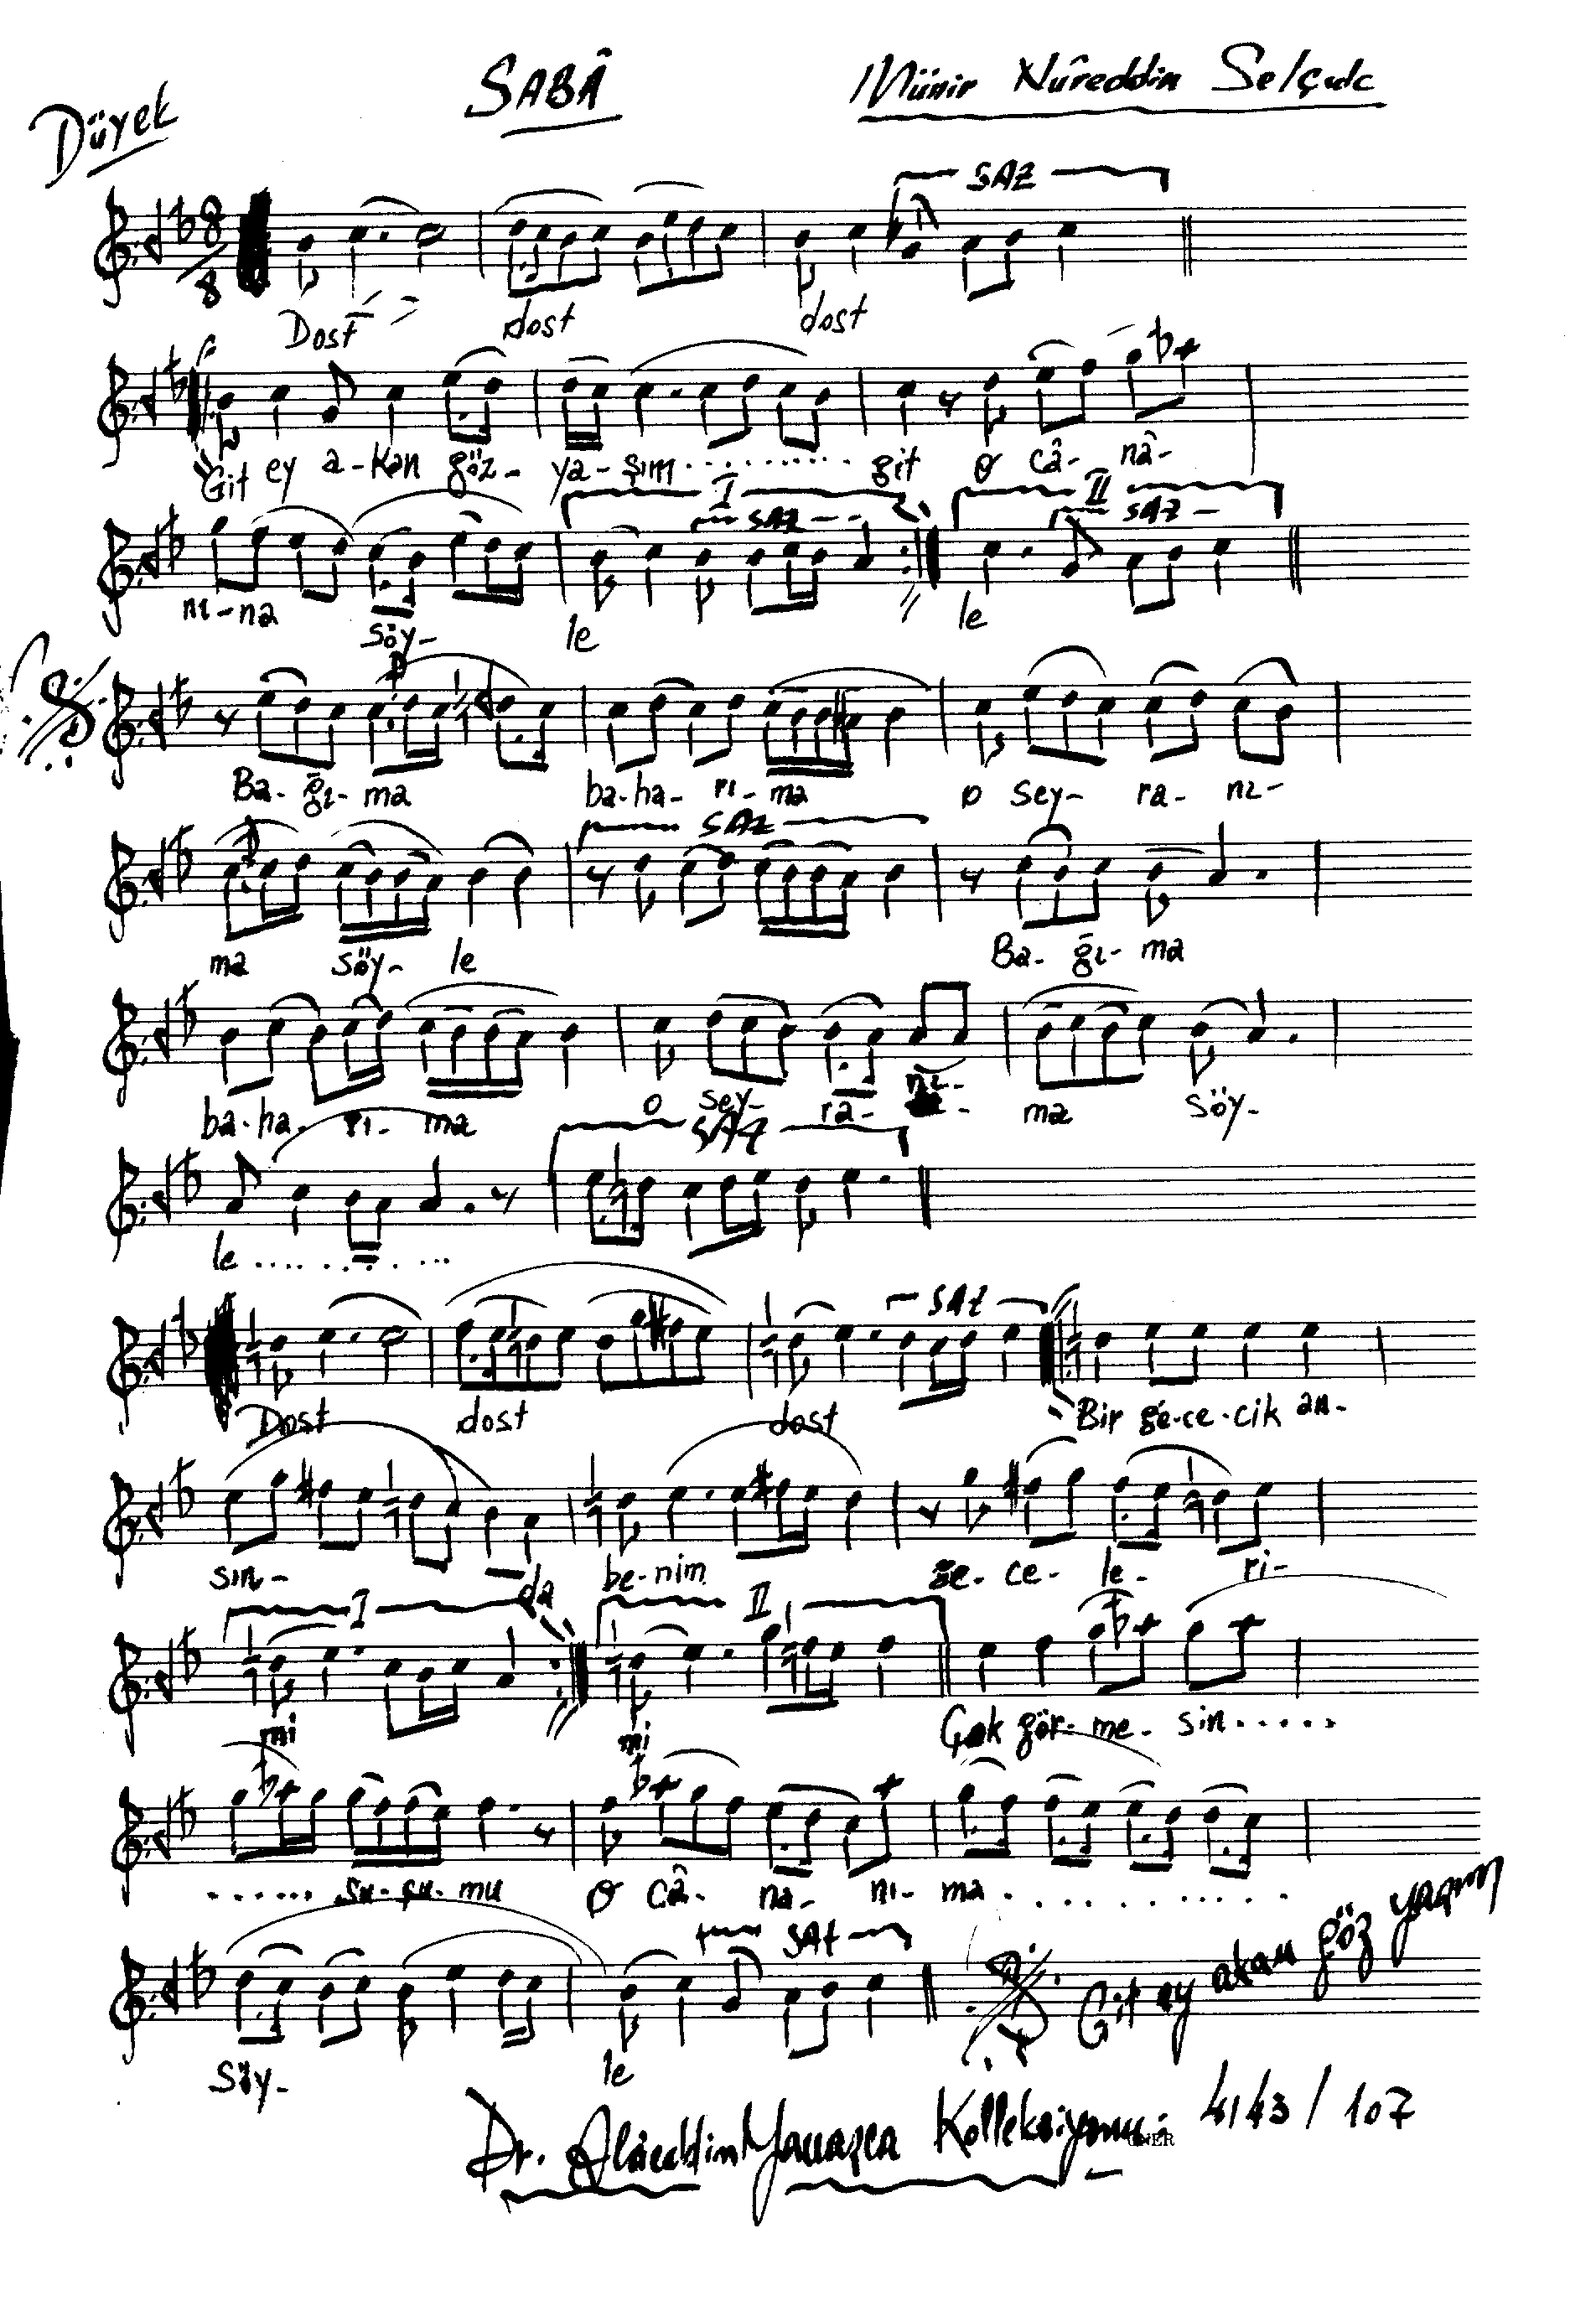 Düyek SABÂ Münir Nûreddin Selçuk
8/8
SAZ
Dost dost dost
Git ey a-kan göz- ya-şım.......... git o câ- nâ-
I SAZ II SAZ
nı-na söy- le le
Ba-ğı-ma ba-ha-rı-ma o sey- ra- nı-
SAZ
ma söy- le Ba-ğı-ma
ba-ha-rı-ma o sey- ra- nı- ma söy-
SAZ
le.........
SAZ
Dost dost dost Bir ge-ce-cik an-
sın- da be-nim ge-ce-le-ri-
I II
mi mi Çok gör-me-sin.....
...... su-çu-mu o câ- na- nı- ma.........
SAZ
Söy- le Git ey akan göz yaşım
Dr. Alâeddin Yavaşca Kolleksiyonu: 4143/107